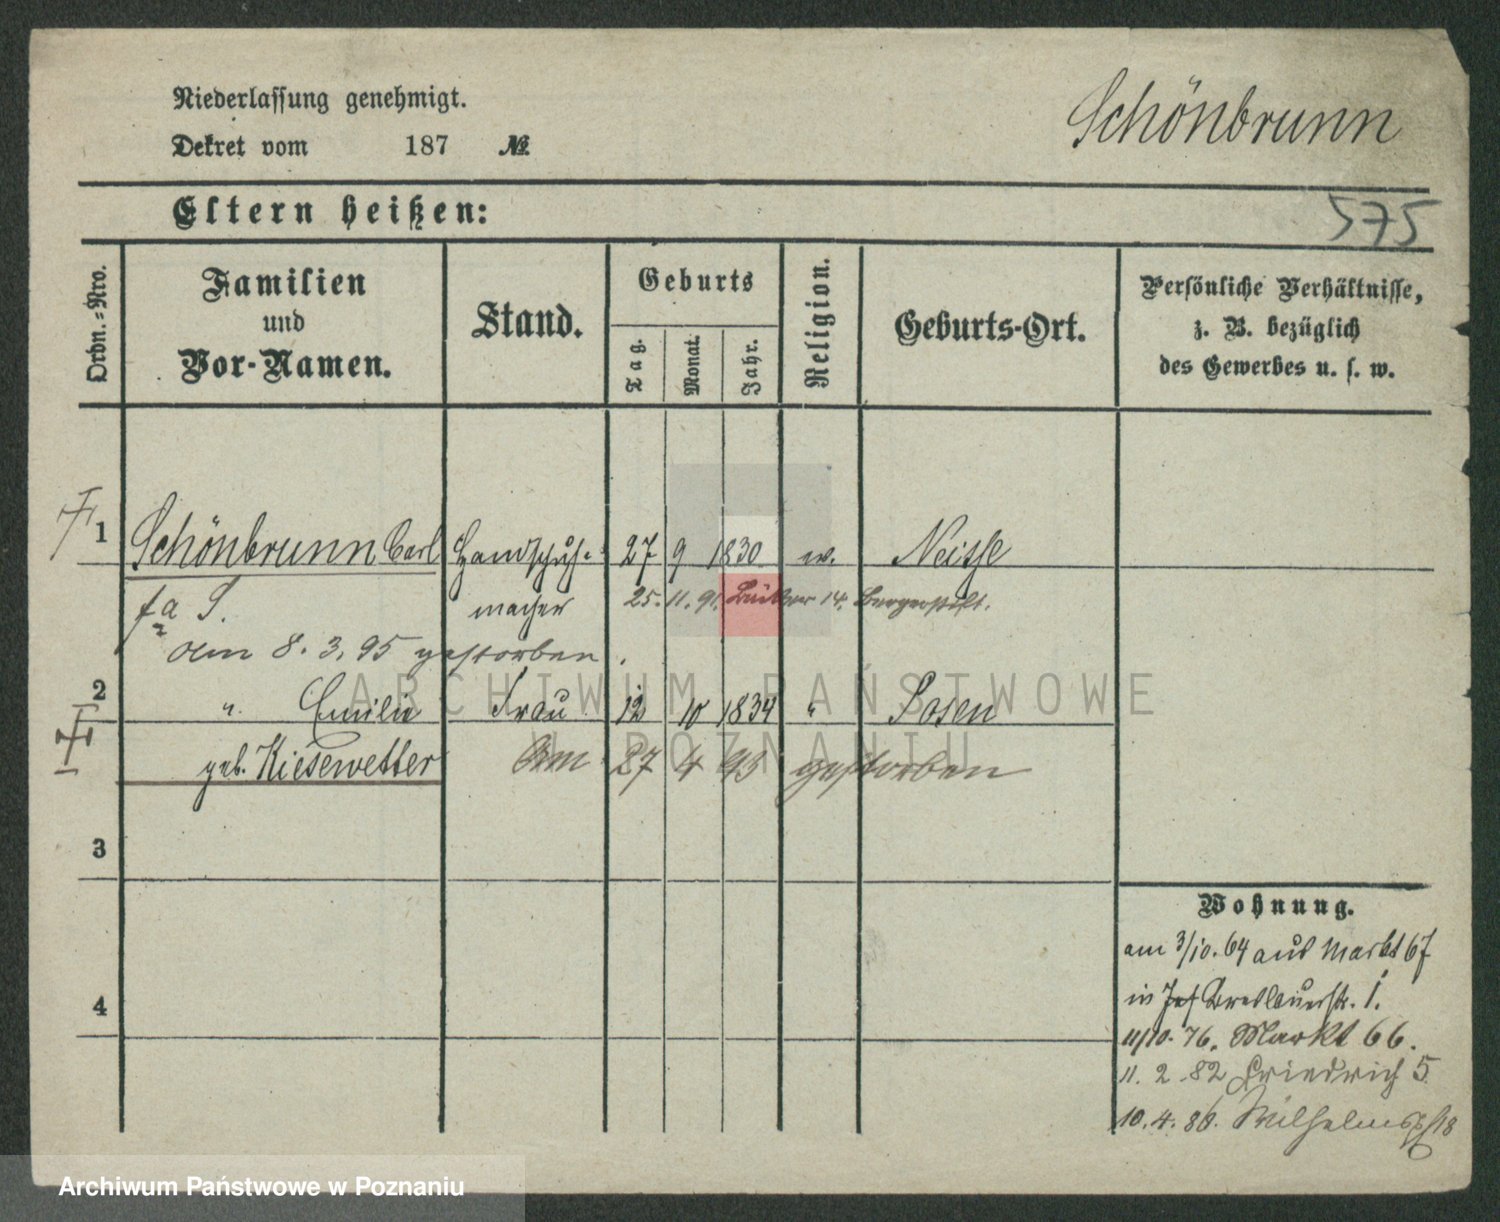 Niederlassung genehmigt.
Schönbrunn
Dekret vom 187 №
Eltern heißen:
575
Ordn.-Nro.
Familien
und
Vor-Namen.
Stand.
Geburts
Tag.
Monat.
Jahr.
Religion.
Geburts-Ort.
Persönliche Verhältnisse,
z. B. bezüglich
des Gewerbes u. s. w.
1 Schönbrunn Carl Handschuh- 27 9 1830 Neisse
macher 25. 11. 91. 14.
am 8. 3. 95 gestorben.
2 " Emilie Frau 12 10 1834 " Posen
geb. Kiesewetter Am 27 4 95 gestorben
3
4
Wohnung.
am 3/10. 64 aus Markt 67
in Breslauerstr. 1.
11/10. 76. Markt 66.
11. 2. 82 Friedrich 5
10. 4. 86. Wilhelmspl 18
ARCHIWUM PAŃSTWOWE
W POZNANIU
Archiwum Państwowe w Poznaniu